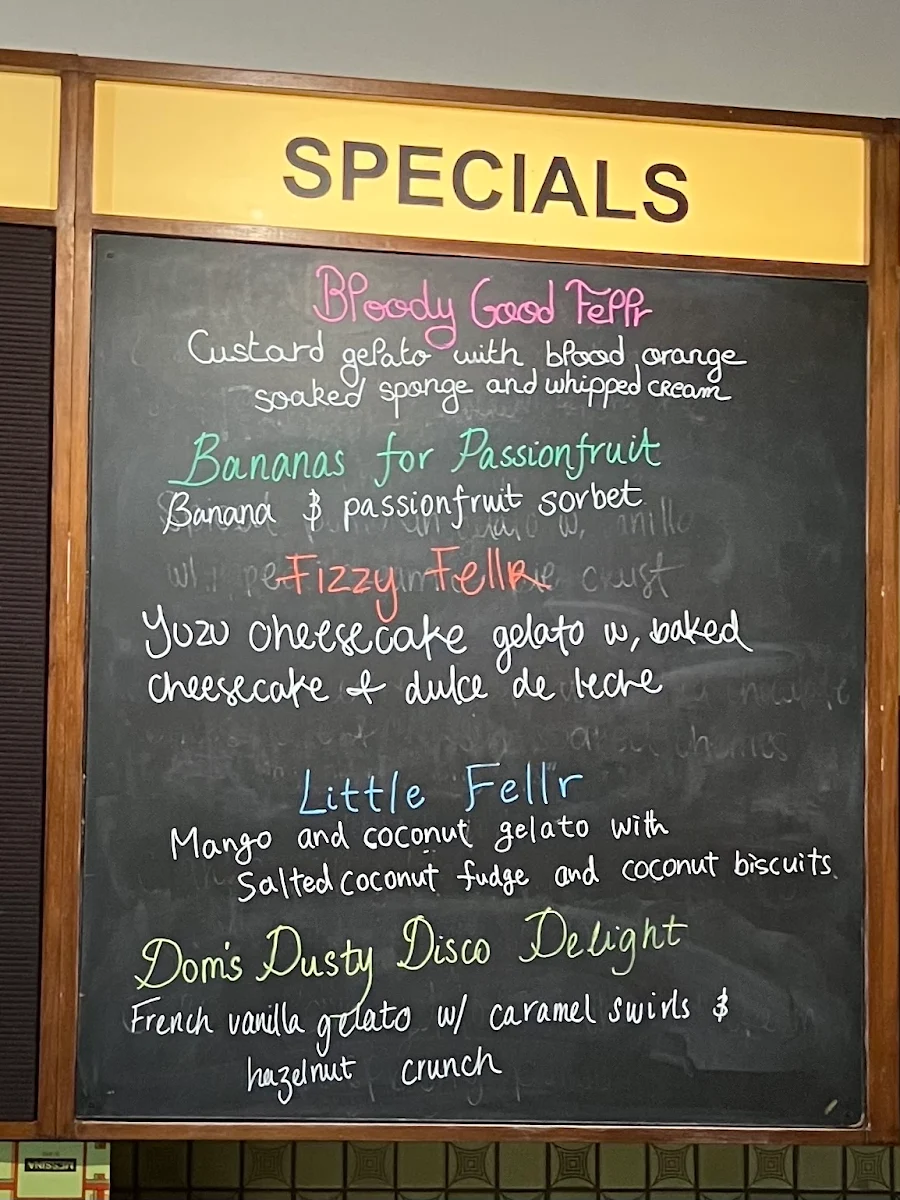 SPECIALS
Bloody Good Fellr
Custard gelato with blood orange
soaked sponge and whipped cream
Bananas for Passionfruit
Banana & passionfruit sorbet
Fizzy Fellr
Yuzu cheesecake gelato w, baked
cheesecake & dulce de leche
Little Fellr
Mango and coconut gelato with
Salted coconut fudge and coconut biscuits.
Dom's Dusty Disco Delight
French vanilla gelato w/ caramel swirls &
hazelnut crunch
MESSINA